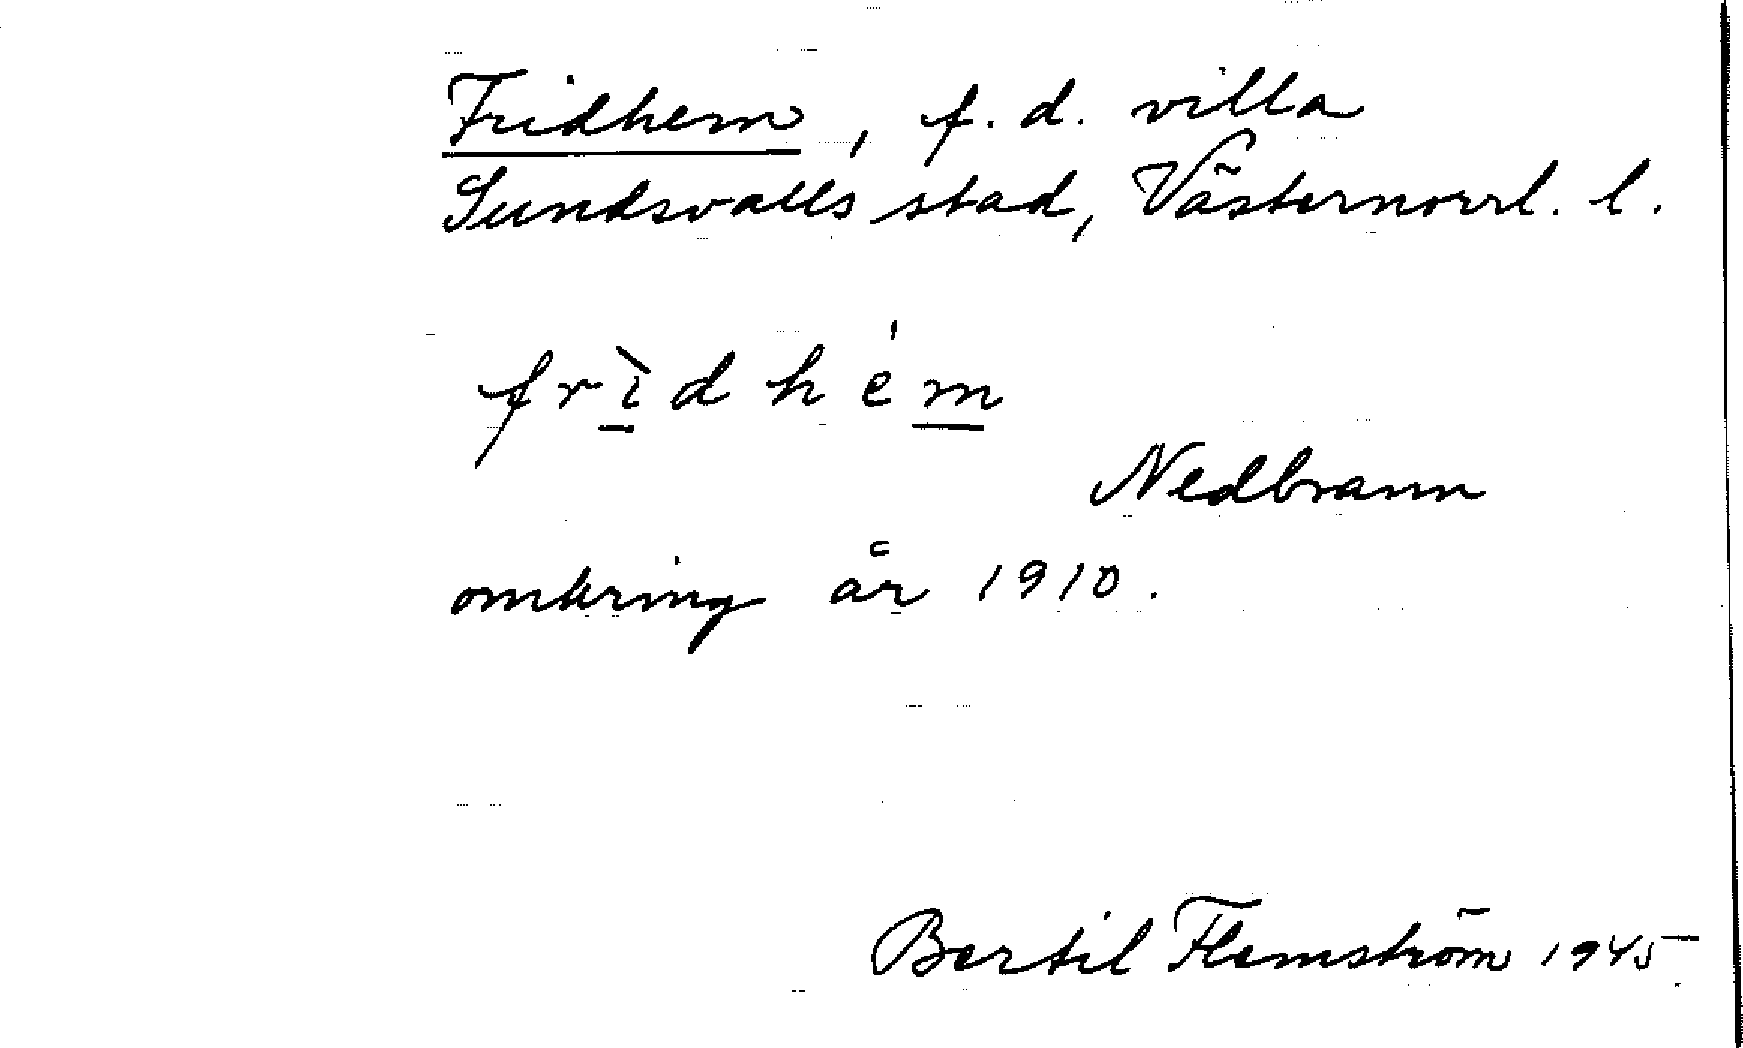 Fridhem, f. d. villa
Sundsvalls stad, Västernorrl. l.
frìdhém
Nedbrann
omkring år 1910.
Bertil Flemström 1945